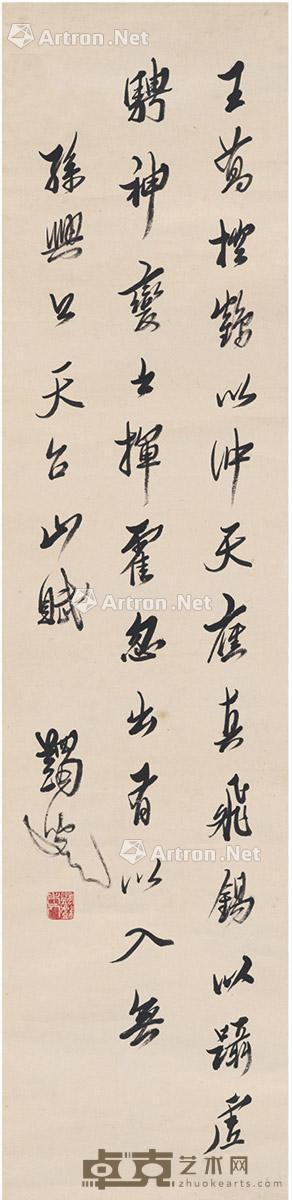 王喬控鶴以沖天應真飛錫以躡虛
騁神變之揮霍忽出有以入無
孫興公天台山賦
蠲叟
Artron.Net
Artron.Net
Artron.Net
Artron.Net
Artron.Net
Artron.Net
卓克艺术网
zhuokearts.com